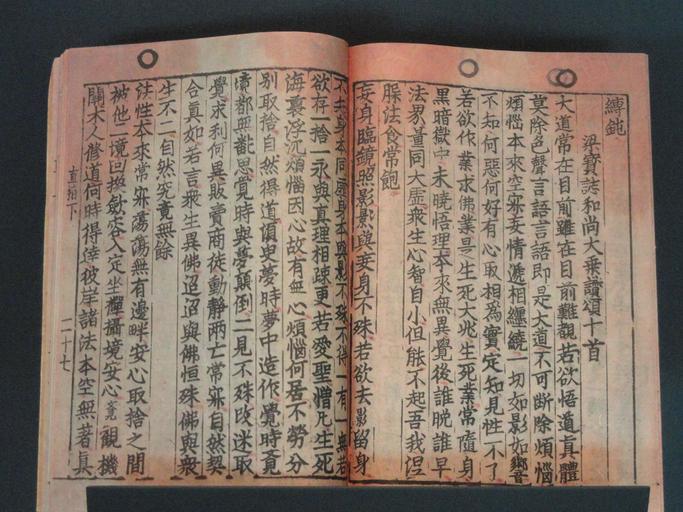 縛鈍
梁寶誌和尚大乗讃頌十首
大道常在目前雖在目前難覩若欲悟道真體
莫除色聲言語言語即是大道不可断除煩惱
煩惱本來空寂妄情遞相纏繞一切如影如響
不知何惡何好有心取相爲實定知見性不了
若欲作業求佛業是生死大兆生死業常隨身
黑暗獄中未曉悟理本來無異覺後誰脱誰早
法界量同大虚衆生心智自小但能不起吾我涅
槃法食常飽
妄身臨鏡照影影與妄身不殊若欲去影留身
不去身本同虚身本與影不殊不得一有一無若
欲存一捨一永與真理相疎更若愛聖憎凡生死
海裏浮沉煩惱因心故有無心煩惱何居不勞分
别取捨自然得道須臾夢時夢中造作覺時覺
境都無翻思覺時與夢顛倒二見不殊改迷取
覺求利何異販賣商徒動靜兩亡常寂自然契
合真如若言衆生異佛迢迢與佛恒殊佛與衆
生不二自然究竟無餘
法性本來常寂蕩蕩無有邊畔安心取捨之間
被他二境回換歛容入定坐禪攝境安心覺觀機
關木人修道何時得達彼岸諸法本空無著真
直指下
二十七